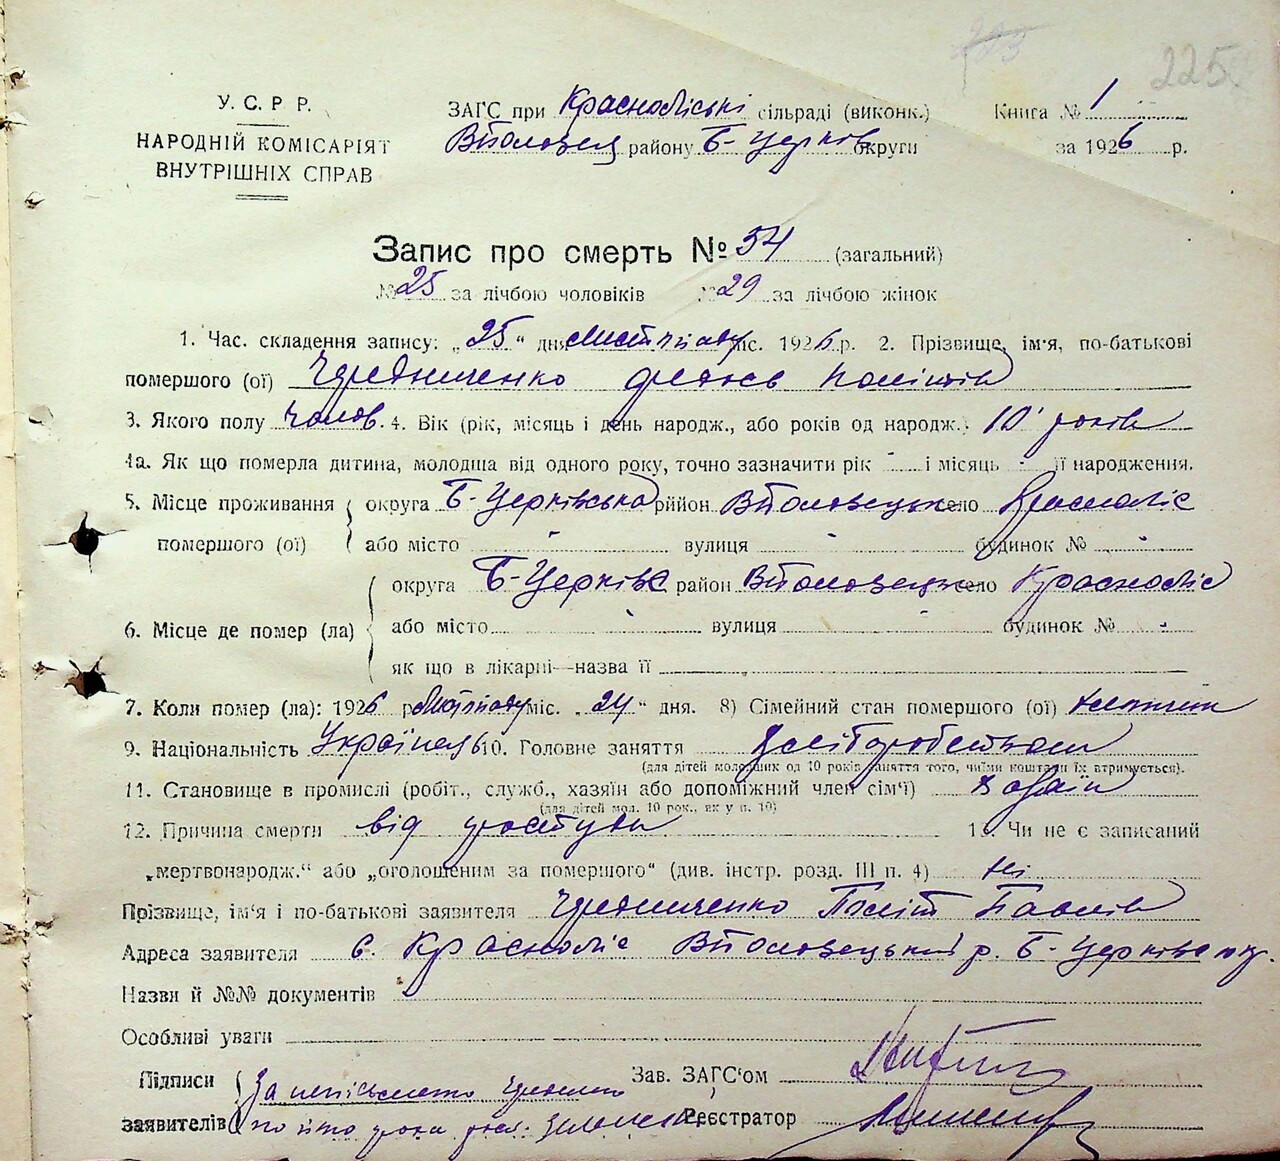 225
У. С. Р. Р.
НАРОДНІЙ КОМІСАРІЯТ
ВНУТРІШНІХ СПРАВ
ЗАГС при Краснолiські сільраді (виконк.) Книга № 1
району Б-Церків округи за 1926 р.
Запис про смерть № 54 (загальний)
№ 25 за лічбою чоловіків № 29 за лічбою жінок
1. Час. складення запису: „25" дня листопаду міс. 1926 р. 2. Прізвище, ім'я, по-батькові
помершого (ої) Чередниченко
3. Якого полу чолов. 4. Вік (рік, місяць і день народж., або років од народж.) 10 років
4а. Як що померла дитина, молодша від одного року, точно зазначити рік - і місяць - її народження.
5. Місце проживання округа Б-Церківська рійон село Красноліс
помершого (ої) або місто - вулиця - будинок № -
округа Б-Церківс район село Красноліс
6. Місце де помер (ла) або місто - вулиця - будинок № -
як що в лікарні—назва її
7. Коли помер (ла): 1926 р. листопаду міс. „24" дня. 8) Сімейний стан помершого (ої)
9. Національність Українець 10. Головне заняття
(для дітей молодших од 10 років заняття того, чиїми коштами їх втримується).
11. Становище в промислі (робіт., служб., хазяїн або допоміжний член сім'ї) хазяїн
(для дітей мол. 10 рок., як у п. 10)
12. Причина смерти від простуди 13. Чи не є записаний
„мертвонародж." або „оголошеним за помершого" (див. інстр. розд. III п. 4) ні
Прізвище, ім'я і по-батькові заявителя Чередниченко Політ Павлів
Адреса заявителя с. Красноліс р. Б-Церківс окр.
Назви й №№ документів
Особливі уваги
Підписи За неписьменно Зав. ЗАГС'ом
заявителів по його Реєстратор